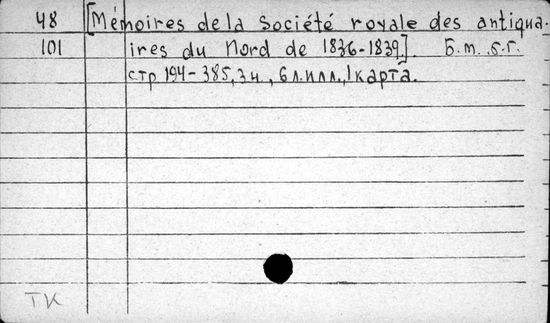 48 [Mémoires de la Société royale des antiqua-
101 ires du Nord de 1836-1839]. Б.м., б.г.
стр 194-385, 3 н., 6 л. илл., 1 карта.
ТК